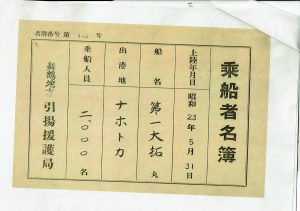 乗船者名簿
上陸年月日 昭和23年5月31日
船名 第一大拓丸
出港地 ナホトカ
乗船人員 二,000名
舞鶴地方引揚援護局
名簿番号 第 号